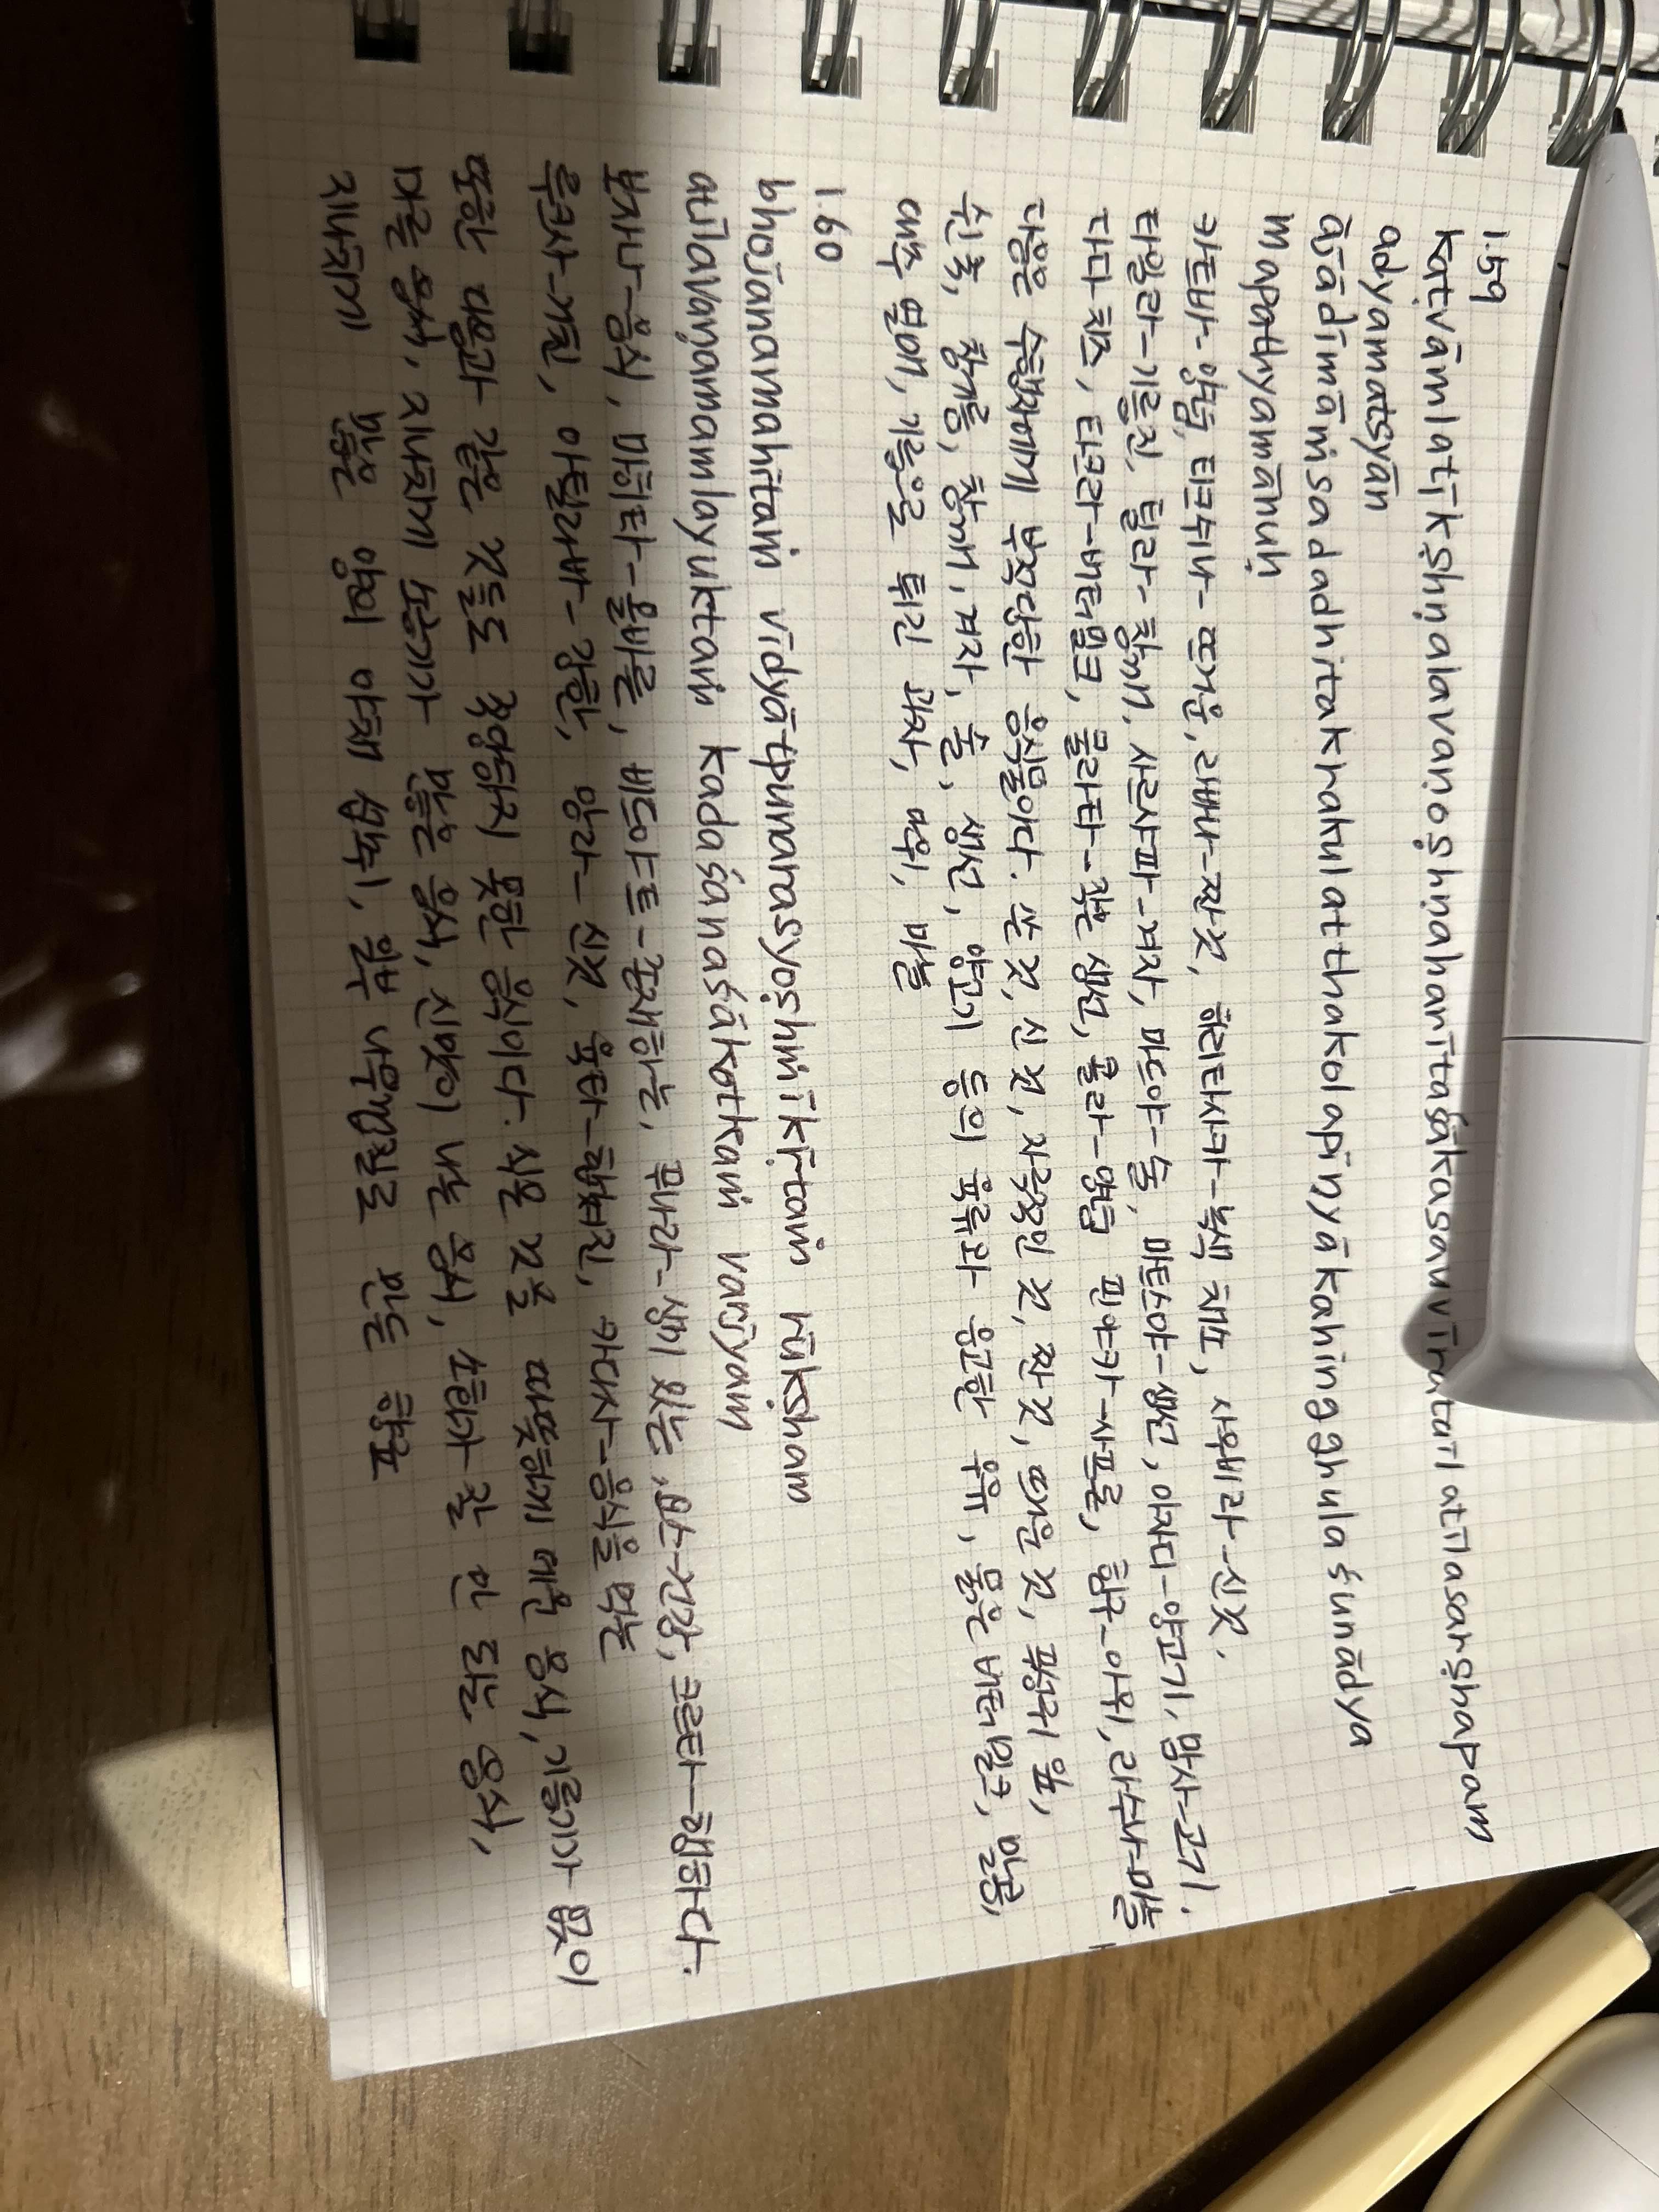 1.59
katvāmlatīkshṇalavaṇoshṇaharītaśākasauvīratailatilasarshapam
adyamatsyān
ājādimāṁsadadhitakrakulatthakolapiṇyākahiṅggulaśunādya
mapathyamāhuḥ
카트바-양념, 티크쉬나-뜨거운, 라바나-짠것, 하리타사카-녹색 채소, 사우비라-신것,
타일라-기름진, 틸라-참깨, 사르사파-겨자, 마드야-술, 마트스야-생선, 아자디-양고기, 맘사-고기,
다디-치즈, 타크라-버터밀크, 쿨라타-작은 생선, 콜라-양념 핀야카-사프올, 힘구-아위, 라수나-마늘
다음은 수행자에게 부적당한 음식물이다. 쓴 것, 신 것, 자극적인 것, 짠 것, 매운 것, 푸성귀 잎,
신 죽, 참기름, 참깨, 겨자, 술, 생선, 양고기 등의 육류와 응고한 우유, 묽은 버터밀크, 말콩,
대추 열매, 기름으로 튀긴 과자, 아위, 마늘
1.60
bhojanamahitaṁ vidyātpunarasyoshṇīkṛtaṁ rūksham
atilavaṇamamlayuktaṁ kadaśanaśākotkaṁ varjyam
보자나-음식, 마히타-올바른, 비드야트-존재하는, 푸나라-생기 있는, 야스-건강, 크르타-행하다.
룩샤-거친, 아틸라바-강한, 암라-신것, 육타-합쳐진, 카다사-음식을 먹는
또한 다음과 같은 것들도 적당하지 못한 음식이다. 식은 것을 따뜻하게 데운 음식, 기름기가 없이
마른 음식, 지나치게 소금기가 많은 음식, 신맛이 나는 음식, 소화가 잘 안 되는 음식,
지나치게 많은 양의 야채 섭취, 일부 나뭇잎으로 만든 향료